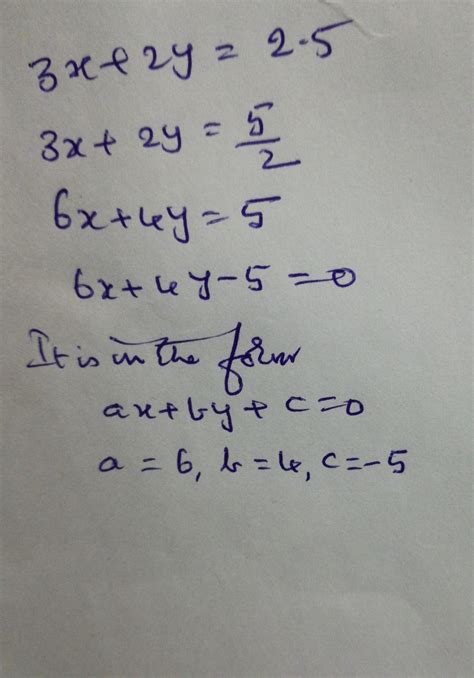 3x + 2y = 2.5
3x + 2y = 5/2
6x + 4y = 5
6x + 4y - 5 = 0
It is in the form
ax + by + c = 0
a = 6, b = 4, c = -5